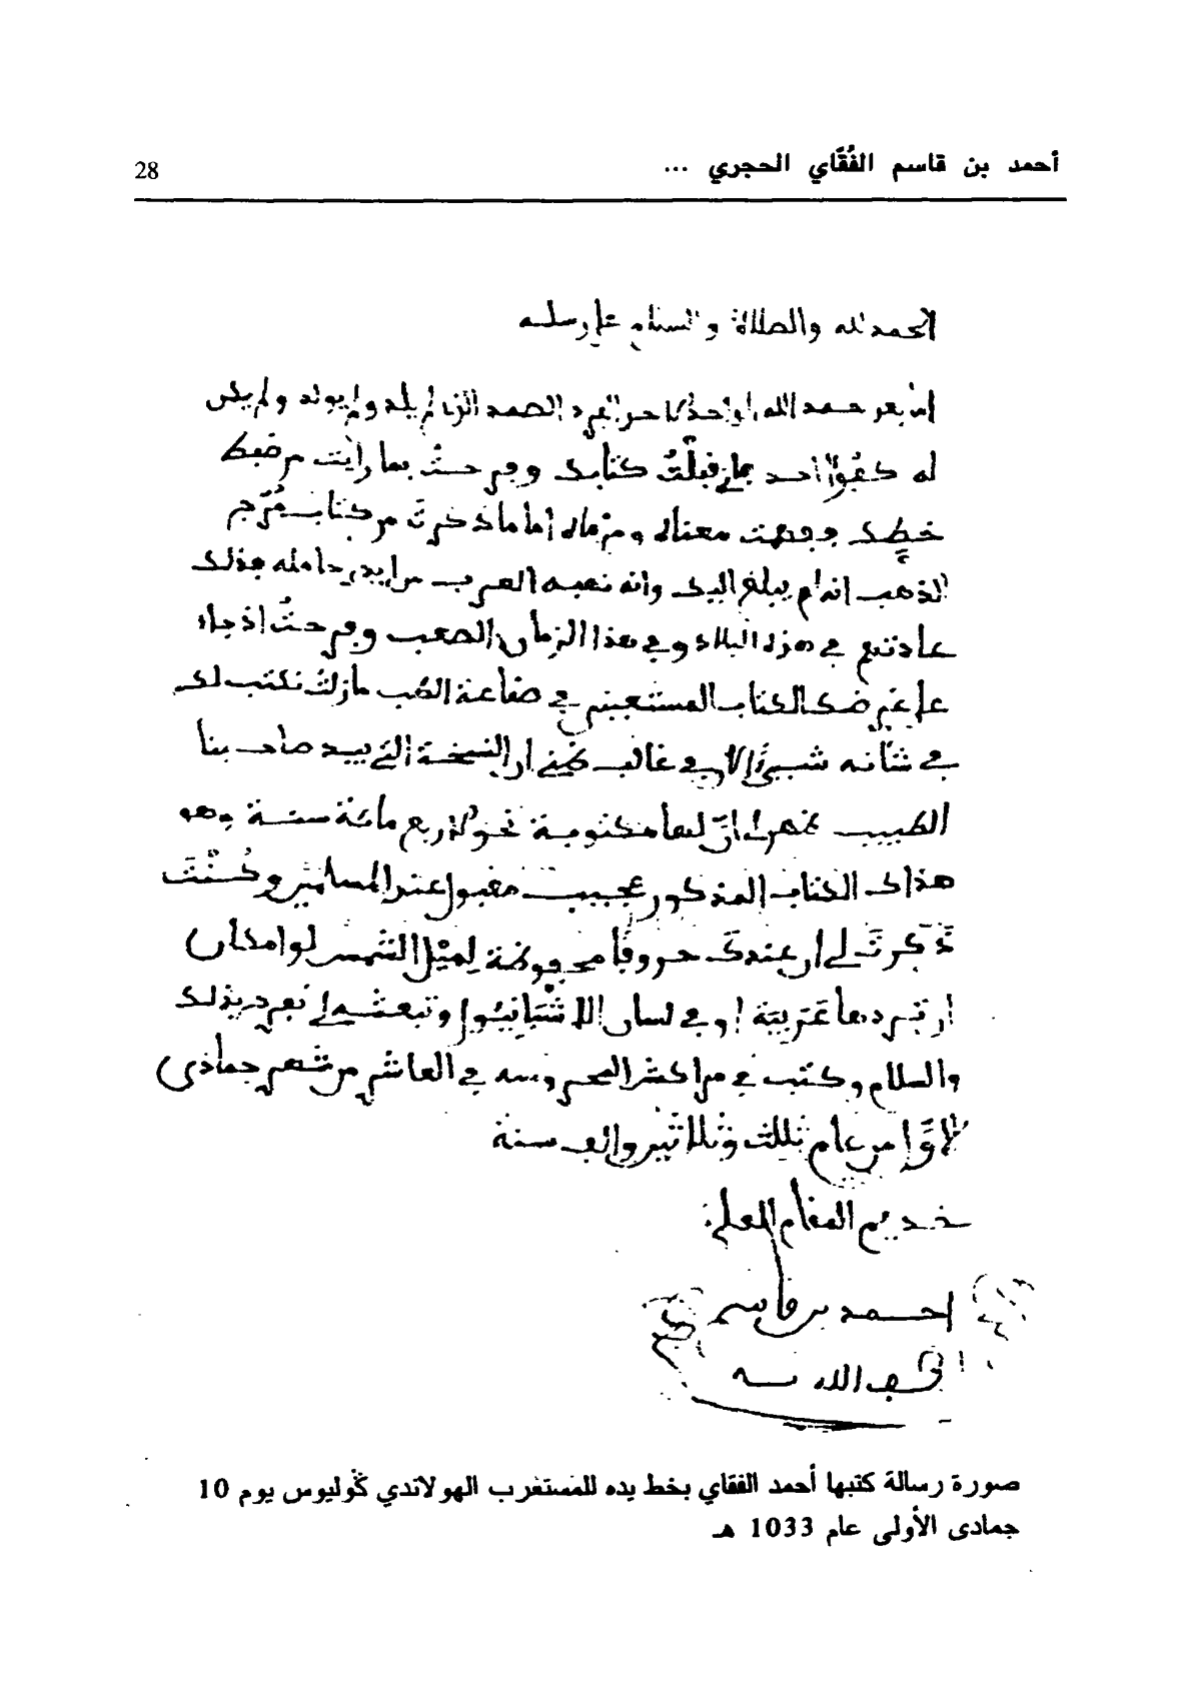 أحمد بن قاسم الفُقَّاي الحجري ...
28
الحمد لله والصلاة والسلام على رسله
اما بعد حمد الله الواحد الاحد الفرد الصمد الذي لم يلد ولم يولد ولم يكن
له كفؤا احد فاني قبلتُ كتابك وفرحتُ بما رايت من ضبط
خطِّك وفهمت معناه ومرماه اما ما ذكرت من كتاب
الذهب انه لم يبلغ اليك وانه نهبه العرب من ايدي حامله فذلك
عادتهم في هذه البلاد وفي هذا الزمان الصعب وفرحتُ اذ جاء
على غرضك الكتاب المستعيني في صناعة الطب مازلت نكتب لك
في شأنه شيئ الا في غالب ظني ان النسخة التي بيد صاحبنا
الطبيب ظهر لي انّ لها مكتوبة نحو الاربع مائة سنة وهو
هذاك الكتاب المذكور عجيب مقبول عند المسلمين وكُنْتَ
ذَكرتَ لي ان عندك حروفا محفوظة لِمَيْل الشمس لو امكن
ان تبردها عَرَبية او في لسان الاشْبَانيُول وتبعثها لي نفرح بذلك
والسلام وكتب في مراكش المحروسة في العاشر من شهر جمادى
الاوَّل من عام ثلث وثلاثين والف سنة
خديم المقام العلي
احمد بن قاسم
لطف الله به
صورة رسالة كتبها أحمد الفقاي بخط يده للمستعرب الهولاندي كُوليوس يوم 10
جمادى الأولى عام 1033 هـ